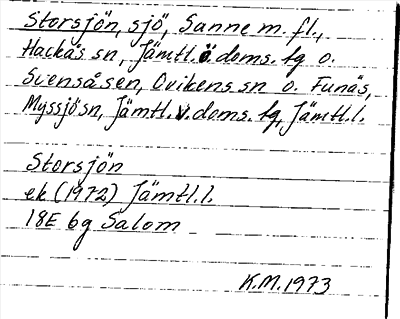 Storsjön, sjö, Sanne m. fl.,
Hackås sn, Jämtl. ö. doms. tg o.
Svensåsen, Ovikens sn o. Funäs,
Myssjö sn, Jämtl. v. doms. tg, Jämtl. l.
Storsjön
ek (1972) Jämtl. l.
18E 6g Salom
K.M. 1973